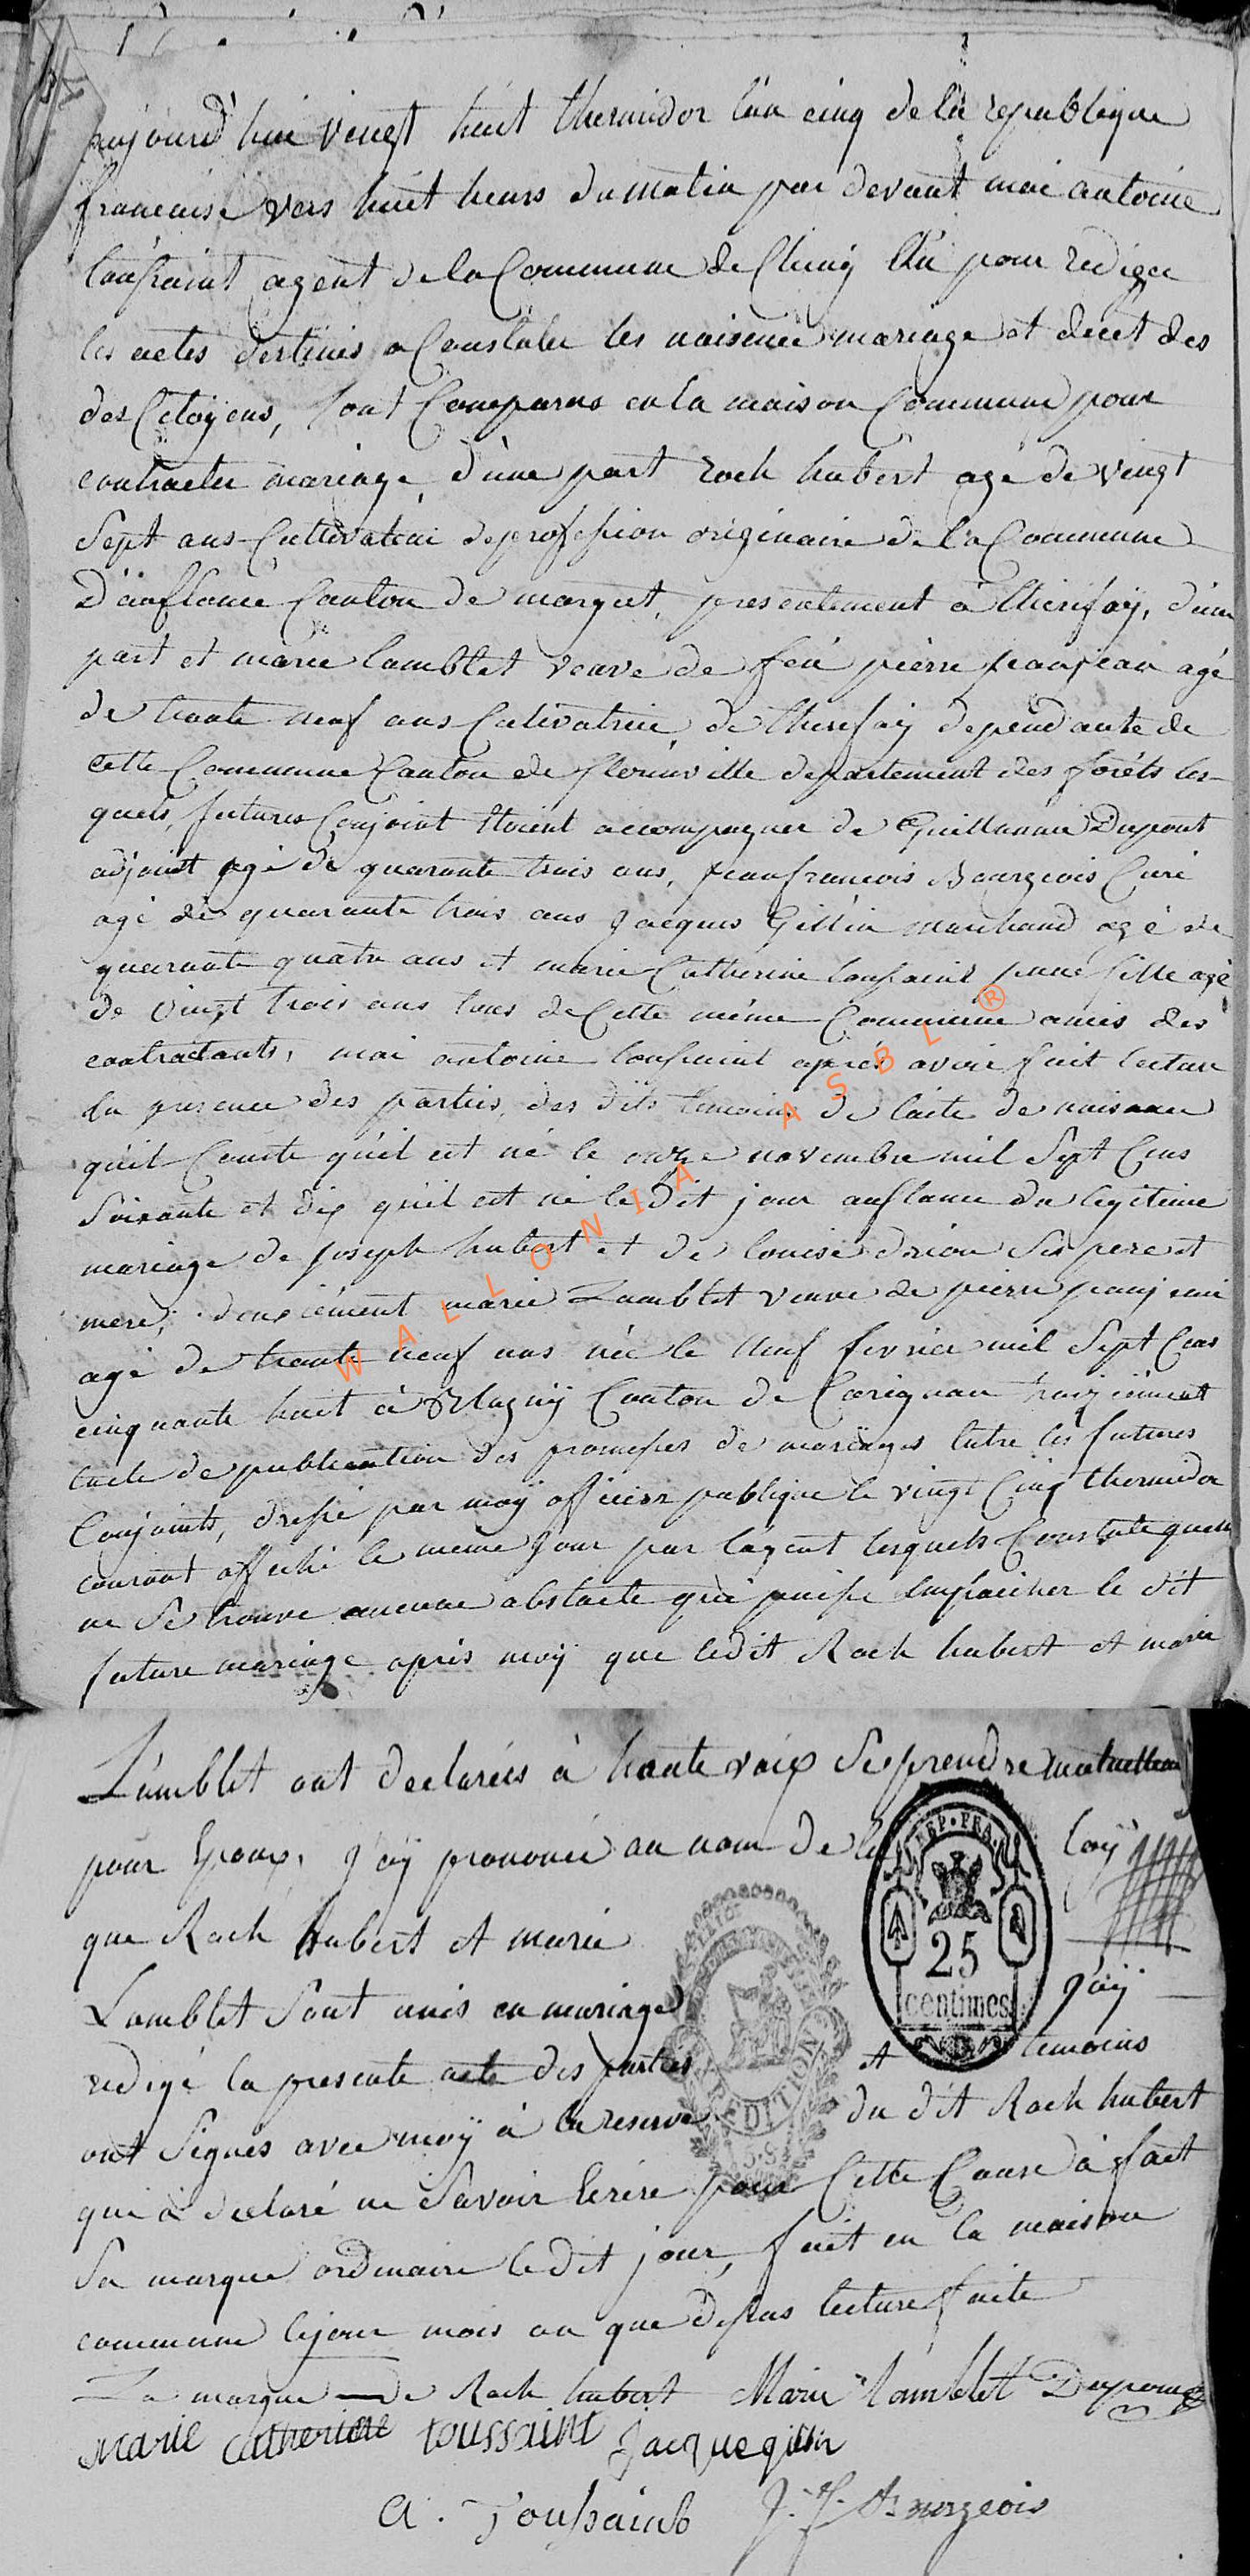 aujourd'hui vingt huit thermidor l'an cinq de la republique
francaise vers huit heurs du matin par devant moi antoine
toussaint agent de la Commune de Chiny Elu pour rediger
les actes destinés a Constater les naisence mariage et decet des
des Citoÿens, sont Comparus en la maison Commune pour
contracter mariage, d'une part roch hubert agé de vingt
Sept ans Cultivateur de profession originaire de la Commune
D'auflance Canton de margut, presentement à thieifaÿ, d'une
part et marie lamblet veuve de feu pierre jeanjean agé
de trente neuf ans Cultivatrice de thieifaÿ dependante de
cette Commune Canton de florinville departement des forêts les-
quels, futures Conjoint Etoient accompagner de Guillaume Dupont
adjoint agé de quarante trois ans, jeanfrancois Bourgeois Curé
agé de quarante trois ans Jacques Gillin marchand agé de
quarante quatre ans et marie Catherine toussaint jeune fille agé
de vingt trois ans tous de Cette même Commune amis des
contractants, moi antoine toussaint aprés avoir fait lecture
En presence des parties, des dits temoins de l'acte de naisance
qu'il Conste qu'il est né le onze novembre mil Sept Cens
Soixante et dix qu'il est né le dit jour auflance du legitime
mariage de joseph hubert et de louise drion Ses pere et
mere; deuxiément marie Lamblet veuve de pierre jeanjean
agé de trente neuf ans née le Neuf fevrier mil Sept Cens
cinquante huit à Blagnÿ Canton de Carignan troiziément
l'acte de publication des promesses de mariages Entre les futures
Conjoints, dressé par moÿ officier publique le vingt Cinq thermidor
courant affiché le même jour par l'agent lesquels Constate quen
ne Se trouve aucune obstacle qui puisse Empaicher le dit
future mariage après moÿ que ledit Rock hubert et marie
Lamblet ont declarées à haute voix Se prendre mutuellem
pour Epoux, J'aÿ prononcé au nom de la loÿ
que Rock hubert et marie
Lamblet Sont unis en mariage J'aÿ
redigé la presente acte des parties et temoins
ont Signés avec moÿ à la reserve du dit Rock hubert
qui à declaré ne Savoir Ecrire pour Cette Cause à fait
Sa marque ordinaire ledit jour, fait en la maison
commune lejour mois an que dessus lecture faite
La marque — de Rock hubert Marie lamblet Dupont
Marie catherine toussaint jacque gillin
A. Toussaint J. f. Bourgeois
REP. FRA.
25
centimes
WALLONIA ASBL ®